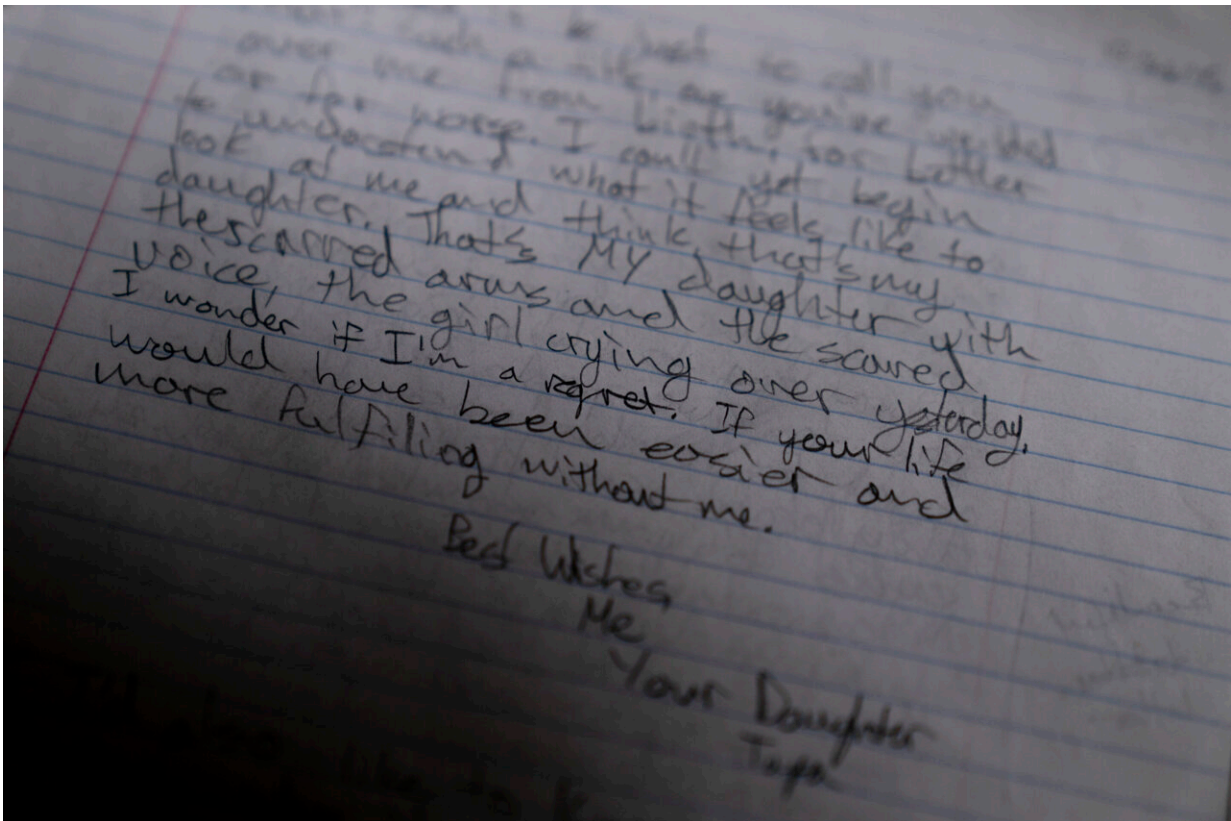 just to call you
such a title as you've wielded
over me from birth, for better
or for worse. I can't yet begin
to understand what it feels like to
look at me and think, that's my
daughter. That's MY daughter with
the scarred arms and the scared
voice, the girl crying over yesterday.
I wonder if I'm a regret. If your life
would have been easier and
more fulfiling without me.
Best Wishes,
Me
Your Daughter